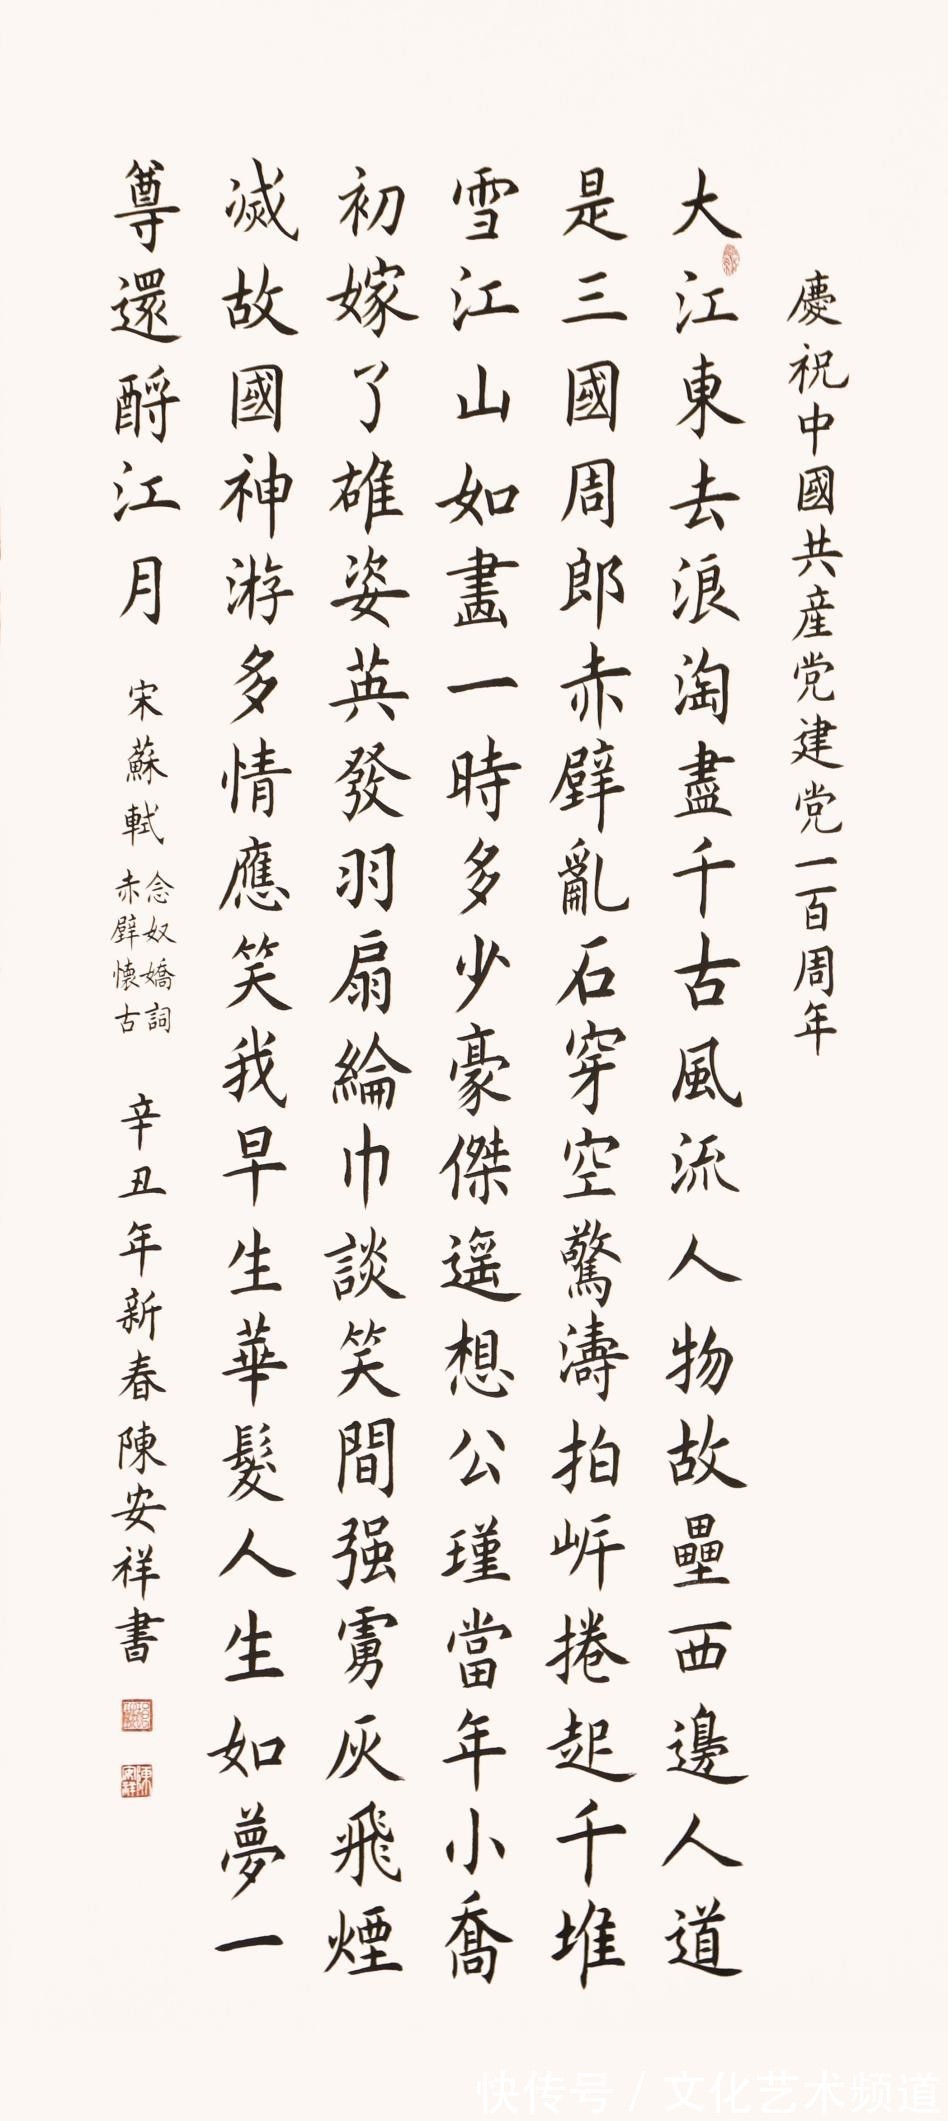 慶祝中國共産党建党一百周年
大江東去浪淘盡千古風流人物故壘西邊人道
是三國周郎赤壁亂石穿空驚濤拍岍捲起千堆
雪江山如畫一時多少豪傑遥想公瑾當年小喬
初嫁了雄姿英發羽扇綸巾談笑間强虜灰飛煙
滅故國神游多情應笑我早生華髮人生如夢一
尊還酹江月
宋蘇軾
念奴嬌詞
赤壁懷古
辛丑年新春陳安祥書
快传号 / 文化艺术频道